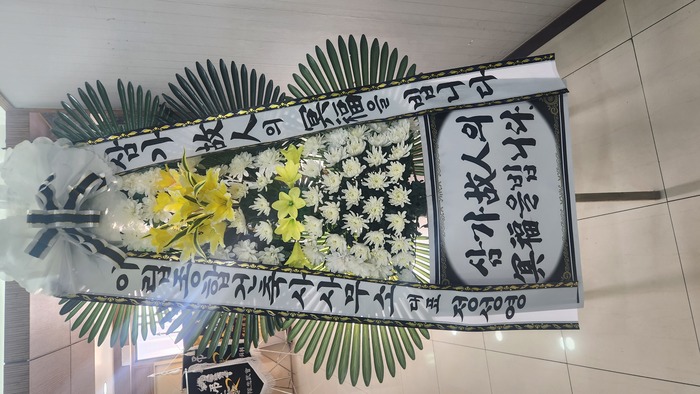 삼가 故人의 冥福을 빕니다
아림종합건축사사무소 대표 정성영
삼가 故人의
冥福을 빕니다.